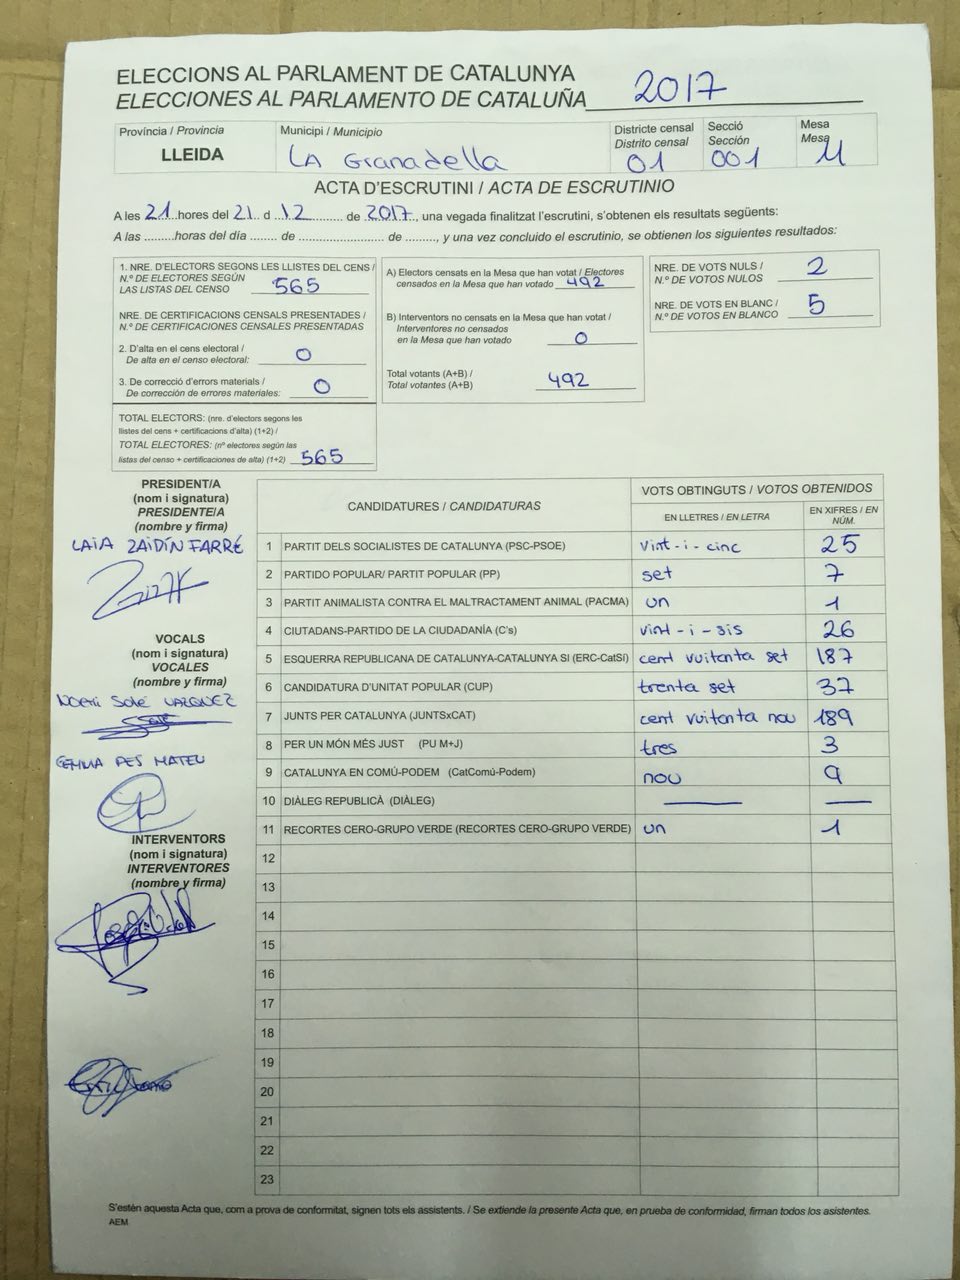 ELECCIONS AL PARLAMENT DE CATALUNYA
ELECCIONES AL PARLAMENTO DE CATALUÑA 2017
Província / Provincia
LLEIDA
Municipi / Municipio
LA Granadella
Districte censal
Distrito censal
01
Secció
Sección
001
Mesa
Mesa
U
ACTA D'ESCRUTINI / ACTA DE ESCRUTINIO
A les 21 hores del 21 d 12 de 2017, una vegada finalitzat l'escrutini, s'obtenen els resultats següents:
A las .........horas del día ........ de ........................ de ........., y una vez concluido el escrutinio, se obtienen los siguientes resultados:
1. NRE. D'ELECTORS SEGONS LES LLISTES DEL CENS /
N.º DE ELECTORES SEGÚN
LAS LISTAS DEL CENSO 565
NRE. DE CERTIFICACIONS CENSALS PRESENTADES /
N.º DE CERTIFICACIONES CENSALES PRESENTADAS
2. D'alta en el cens electoral /
De alta en el censo electoral: 0
3. De correcció d'errors materials /
De corrección de errores materiales: 0
TOTAL ELECTORS: (nre. d'electors segons les
llistes del cens + certificacions d'alta) (1+2) /
TOTAL ELECTORES: (nº electores según las
listas del censo + certificaciones de alta) (1+2) 565
A) Electors censats en la Mesa que han votat / Electores
censados en la Mesa que han votado 492
B) Interventors no censats en la Mesa que han votat /
Interventores no censados
en la Mesa que han votado 0
Total votants (A+B) /
Total votantes (A+B) 492
NRE. DE VOTS NULS /
N.º DE VOTOS NULOS 2
NRE. DE VOTS EN BLANC /
N.º DE VOTOS EN BLANCO 5
PRESIDENT/A
(nom i signatura)
PRESIDENTE/A
(nombre y firma)
LAIA ZAIDÍN FARRÉ
VOCALS
(nom i signatura)
VOCALES
(nombre y firma)
NOEMÍ SOLÉ VAZQUEZ
GEMMA PES MATEU
INTERVENTORS
(nom i signatura)
INTERVENTORES
(nombre y firma)
CANDIDATURES / CANDIDATURAS
VOTS OBTINGUTS / VOTOS OBTENIDOS
EN LLETRES / EN LETRA
EN XIFRES / EN NÚM.
1 PARTIT DELS SOCIALISTES DE CATALUNYA (PSC-PSOE) vint-i-cinc 25
2 PARTIDO POPULAR/ PARTIT POPULAR (PP) set 7
3 PARTIT ANIMALISTA CONTRA EL MALTRACTAMENT ANIMAL (PACMA) un 1
4 CIUTADANS-PARTIDO DE LA CIUDADANÍA (C's) vint-i-sis 26
5 ESQUERRA REPUBLICANA DE CATALUNYA-CATALUNYA SÍ (ERC-CatSí) cent vuitanta set 187
6 CANDIDATURA D'UNITAT POPULAR (CUP) trenta set 37
7 JUNTS PER CATALUNYA (JUNTSxCAT) cent vuitanta nou 189
8 PER UN MÓN MÉS JUST (PU M+J) tres 3
9 CATALUNYA EN COMÚ-PODEM (CatComú-Podem) nou 9
10 DIÀLEG REPUBLICÀ (DIÀLEG)
11 RECORTES CERO-GRUPO VERDE (RECORTES CERO-GRUPO VERDE) un 1
12
13
14
15
16
17
18
19
20
21
22
23
S'estén aquesta Acta que, com a prova de conformitat, signen tots els assistents. / Se extiende la presente Acta que, en prueba de conformidad, firman todos los asistentes.
AEM